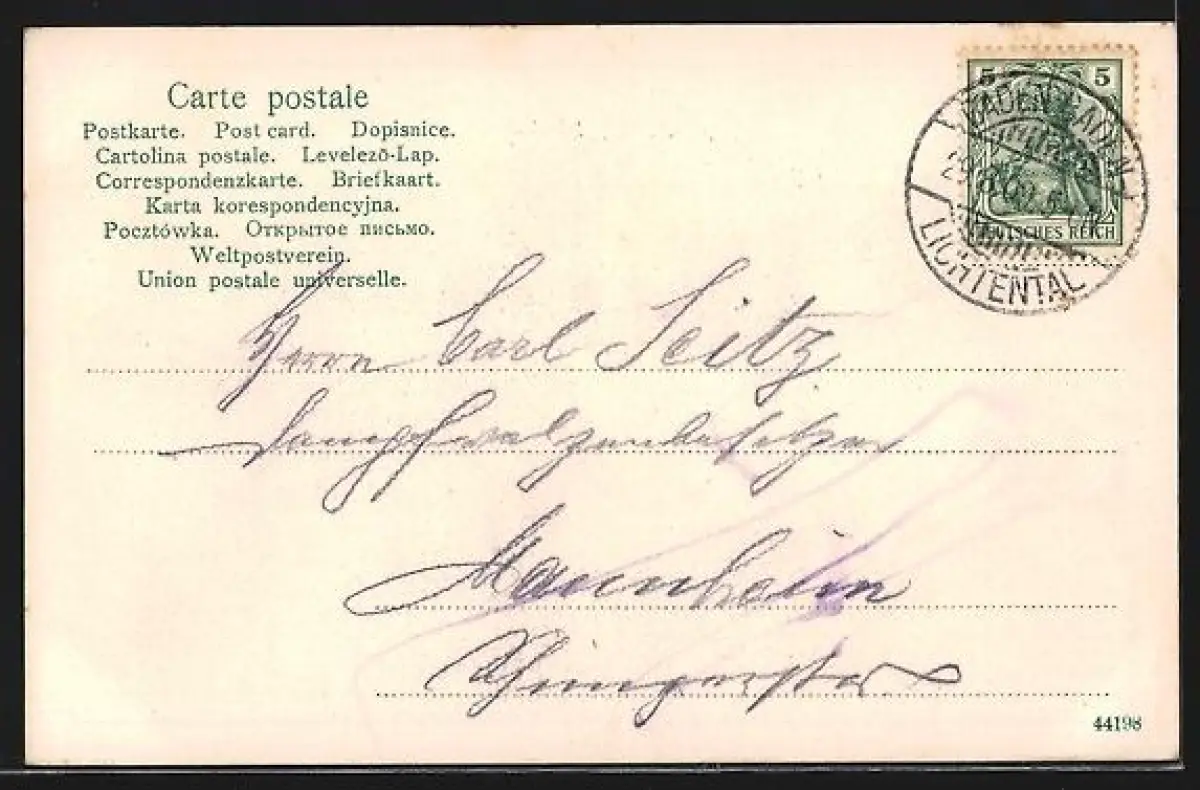 Carte postale
Postkarte. Post card. Dopisnice.
Cartolina postale. Levelezō-Lap.
Correspondenzkarte. Briefkaart.
Karta korespondencyjna.
Pocztówka. Открытое письмо.
Weltpostverein.
Union postale universelle.
5 5
DEUTSCHES REICH
BADEN-BADEN
LICHTENTAL
Herrn Carl Seitz
Dampfwalzenbesitzer
Mannheim
44198